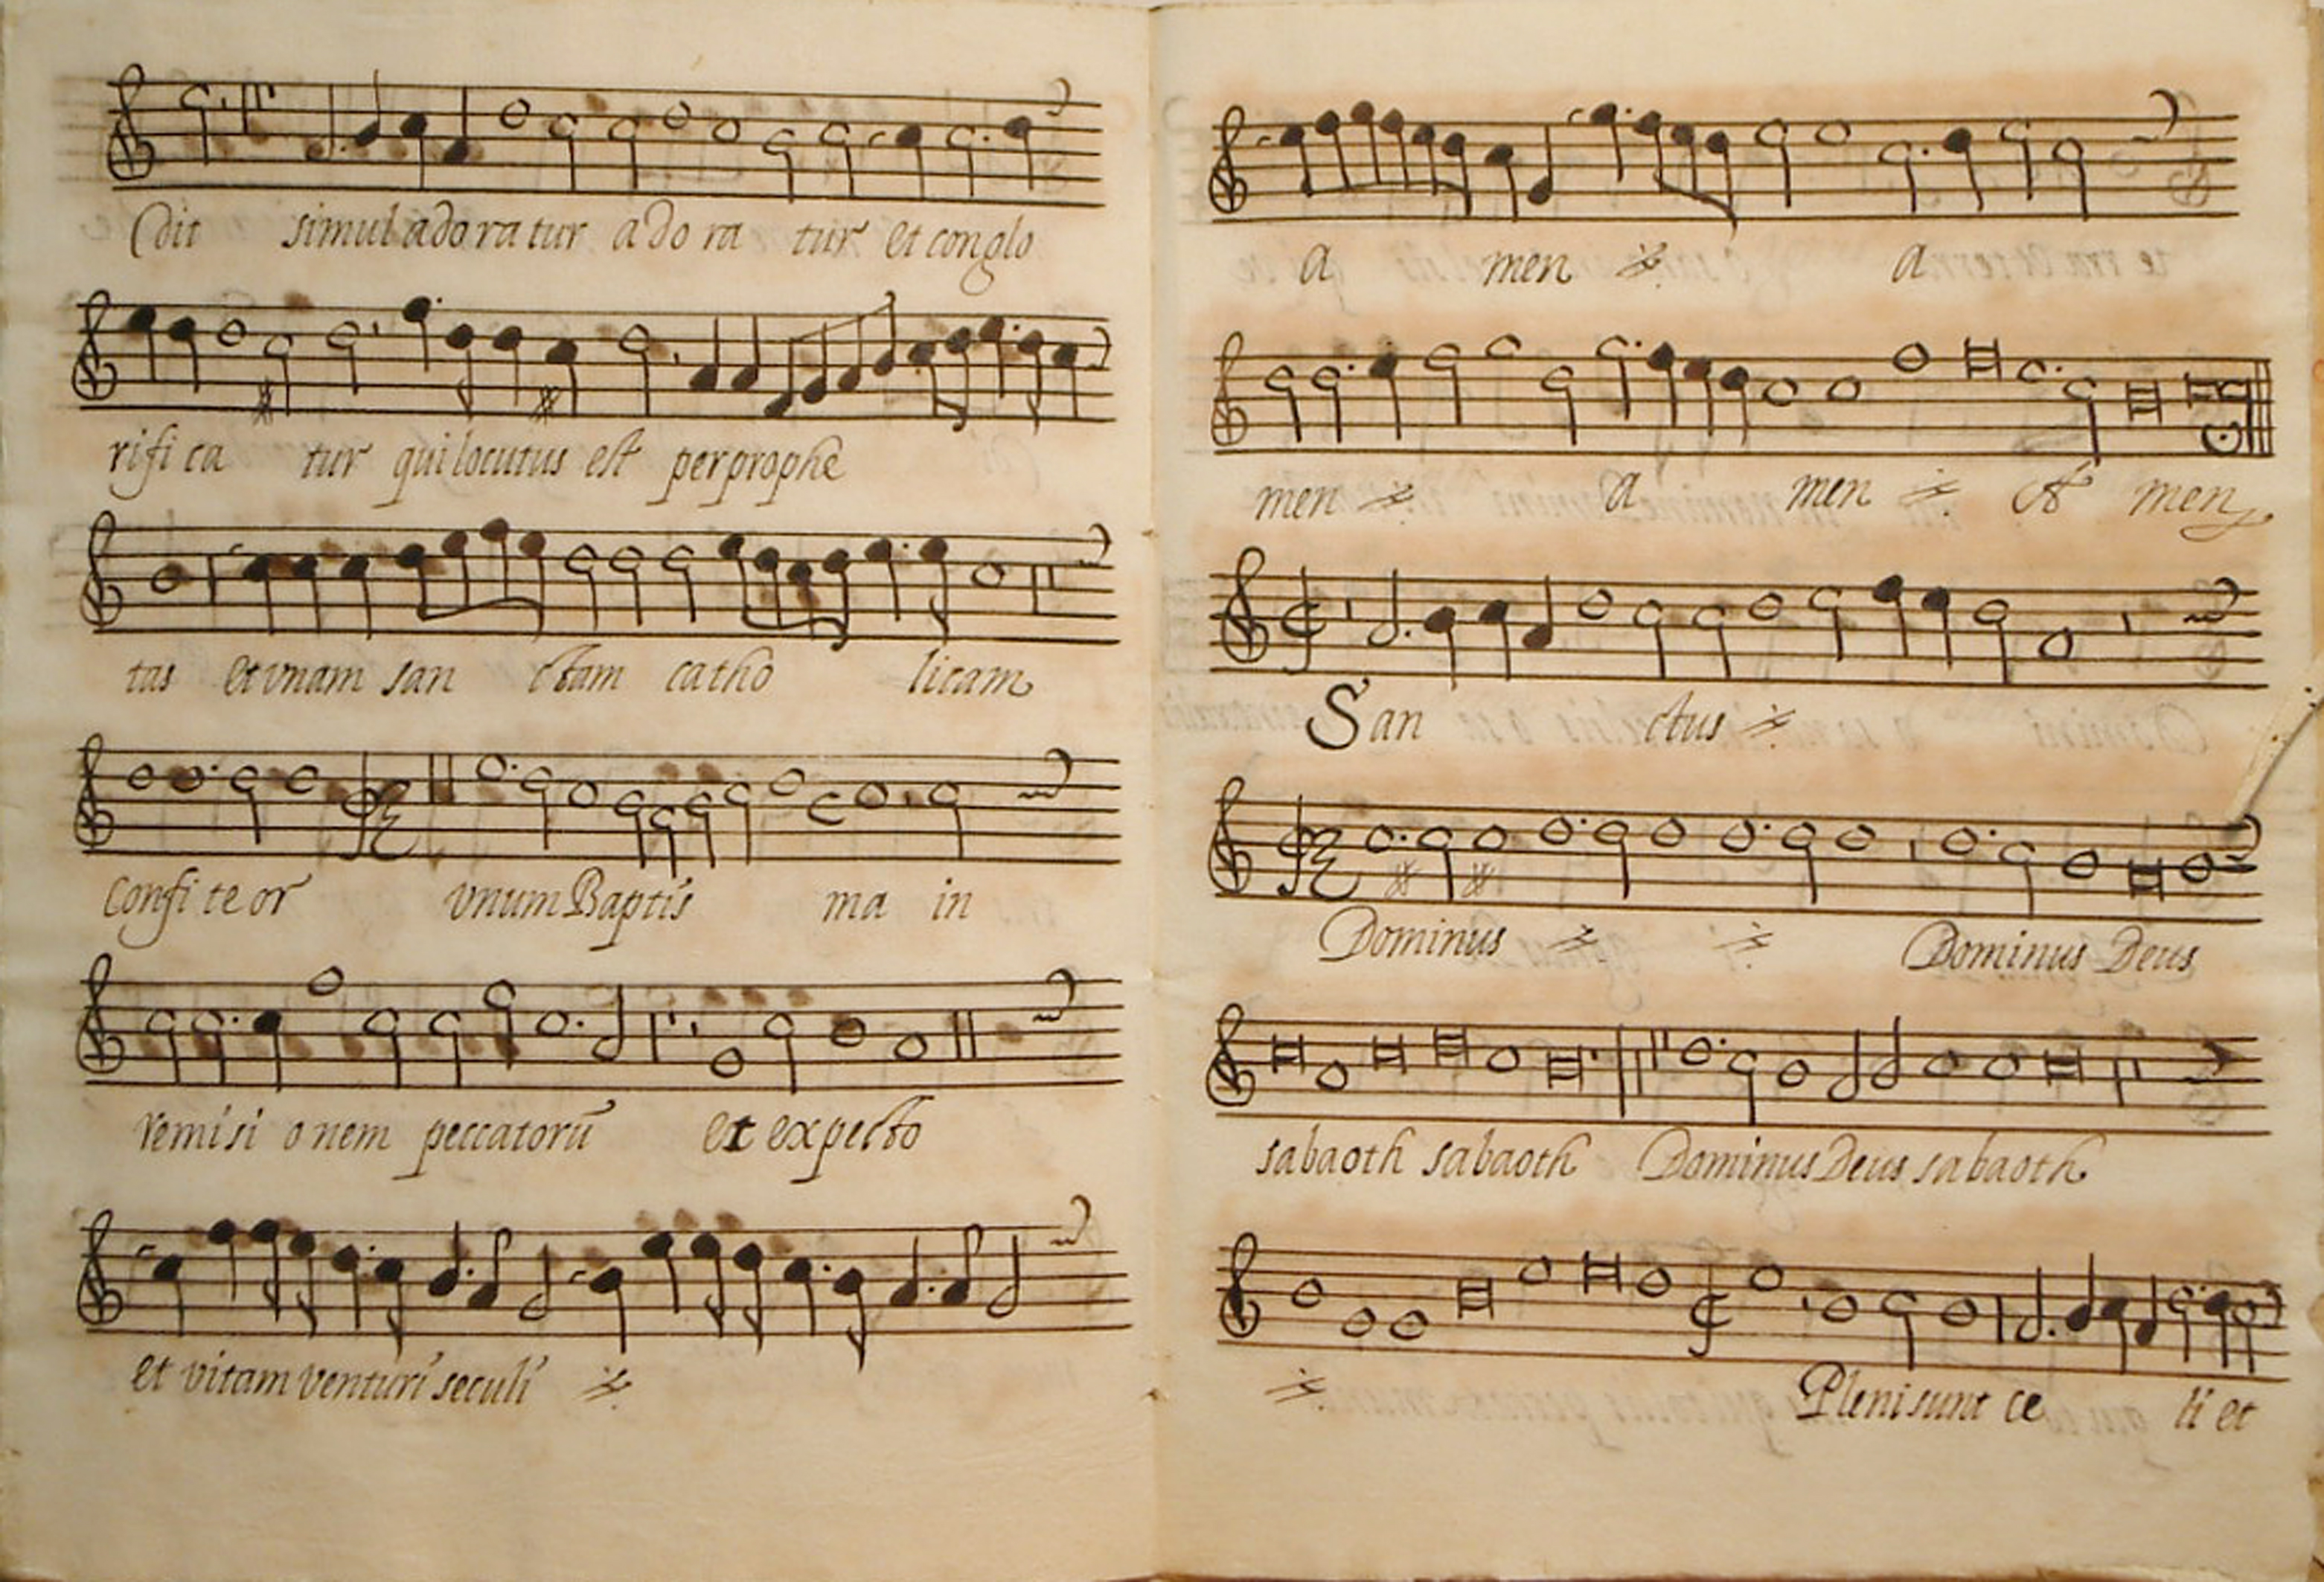 dit simul adoratur adoratur et conglo
rificatur qui locutus est per prophe
tas et vnam sanctam catholicam
Confiteor vnum Baptisma in
remisionem peccatorū et expecto
et vitam venturi seculi
a men a
men a men A men
Sanctus
Dominus Dominus Deus
sabaoth sabaoth Dominus Deus sabaoth
Pleni sunt celi et